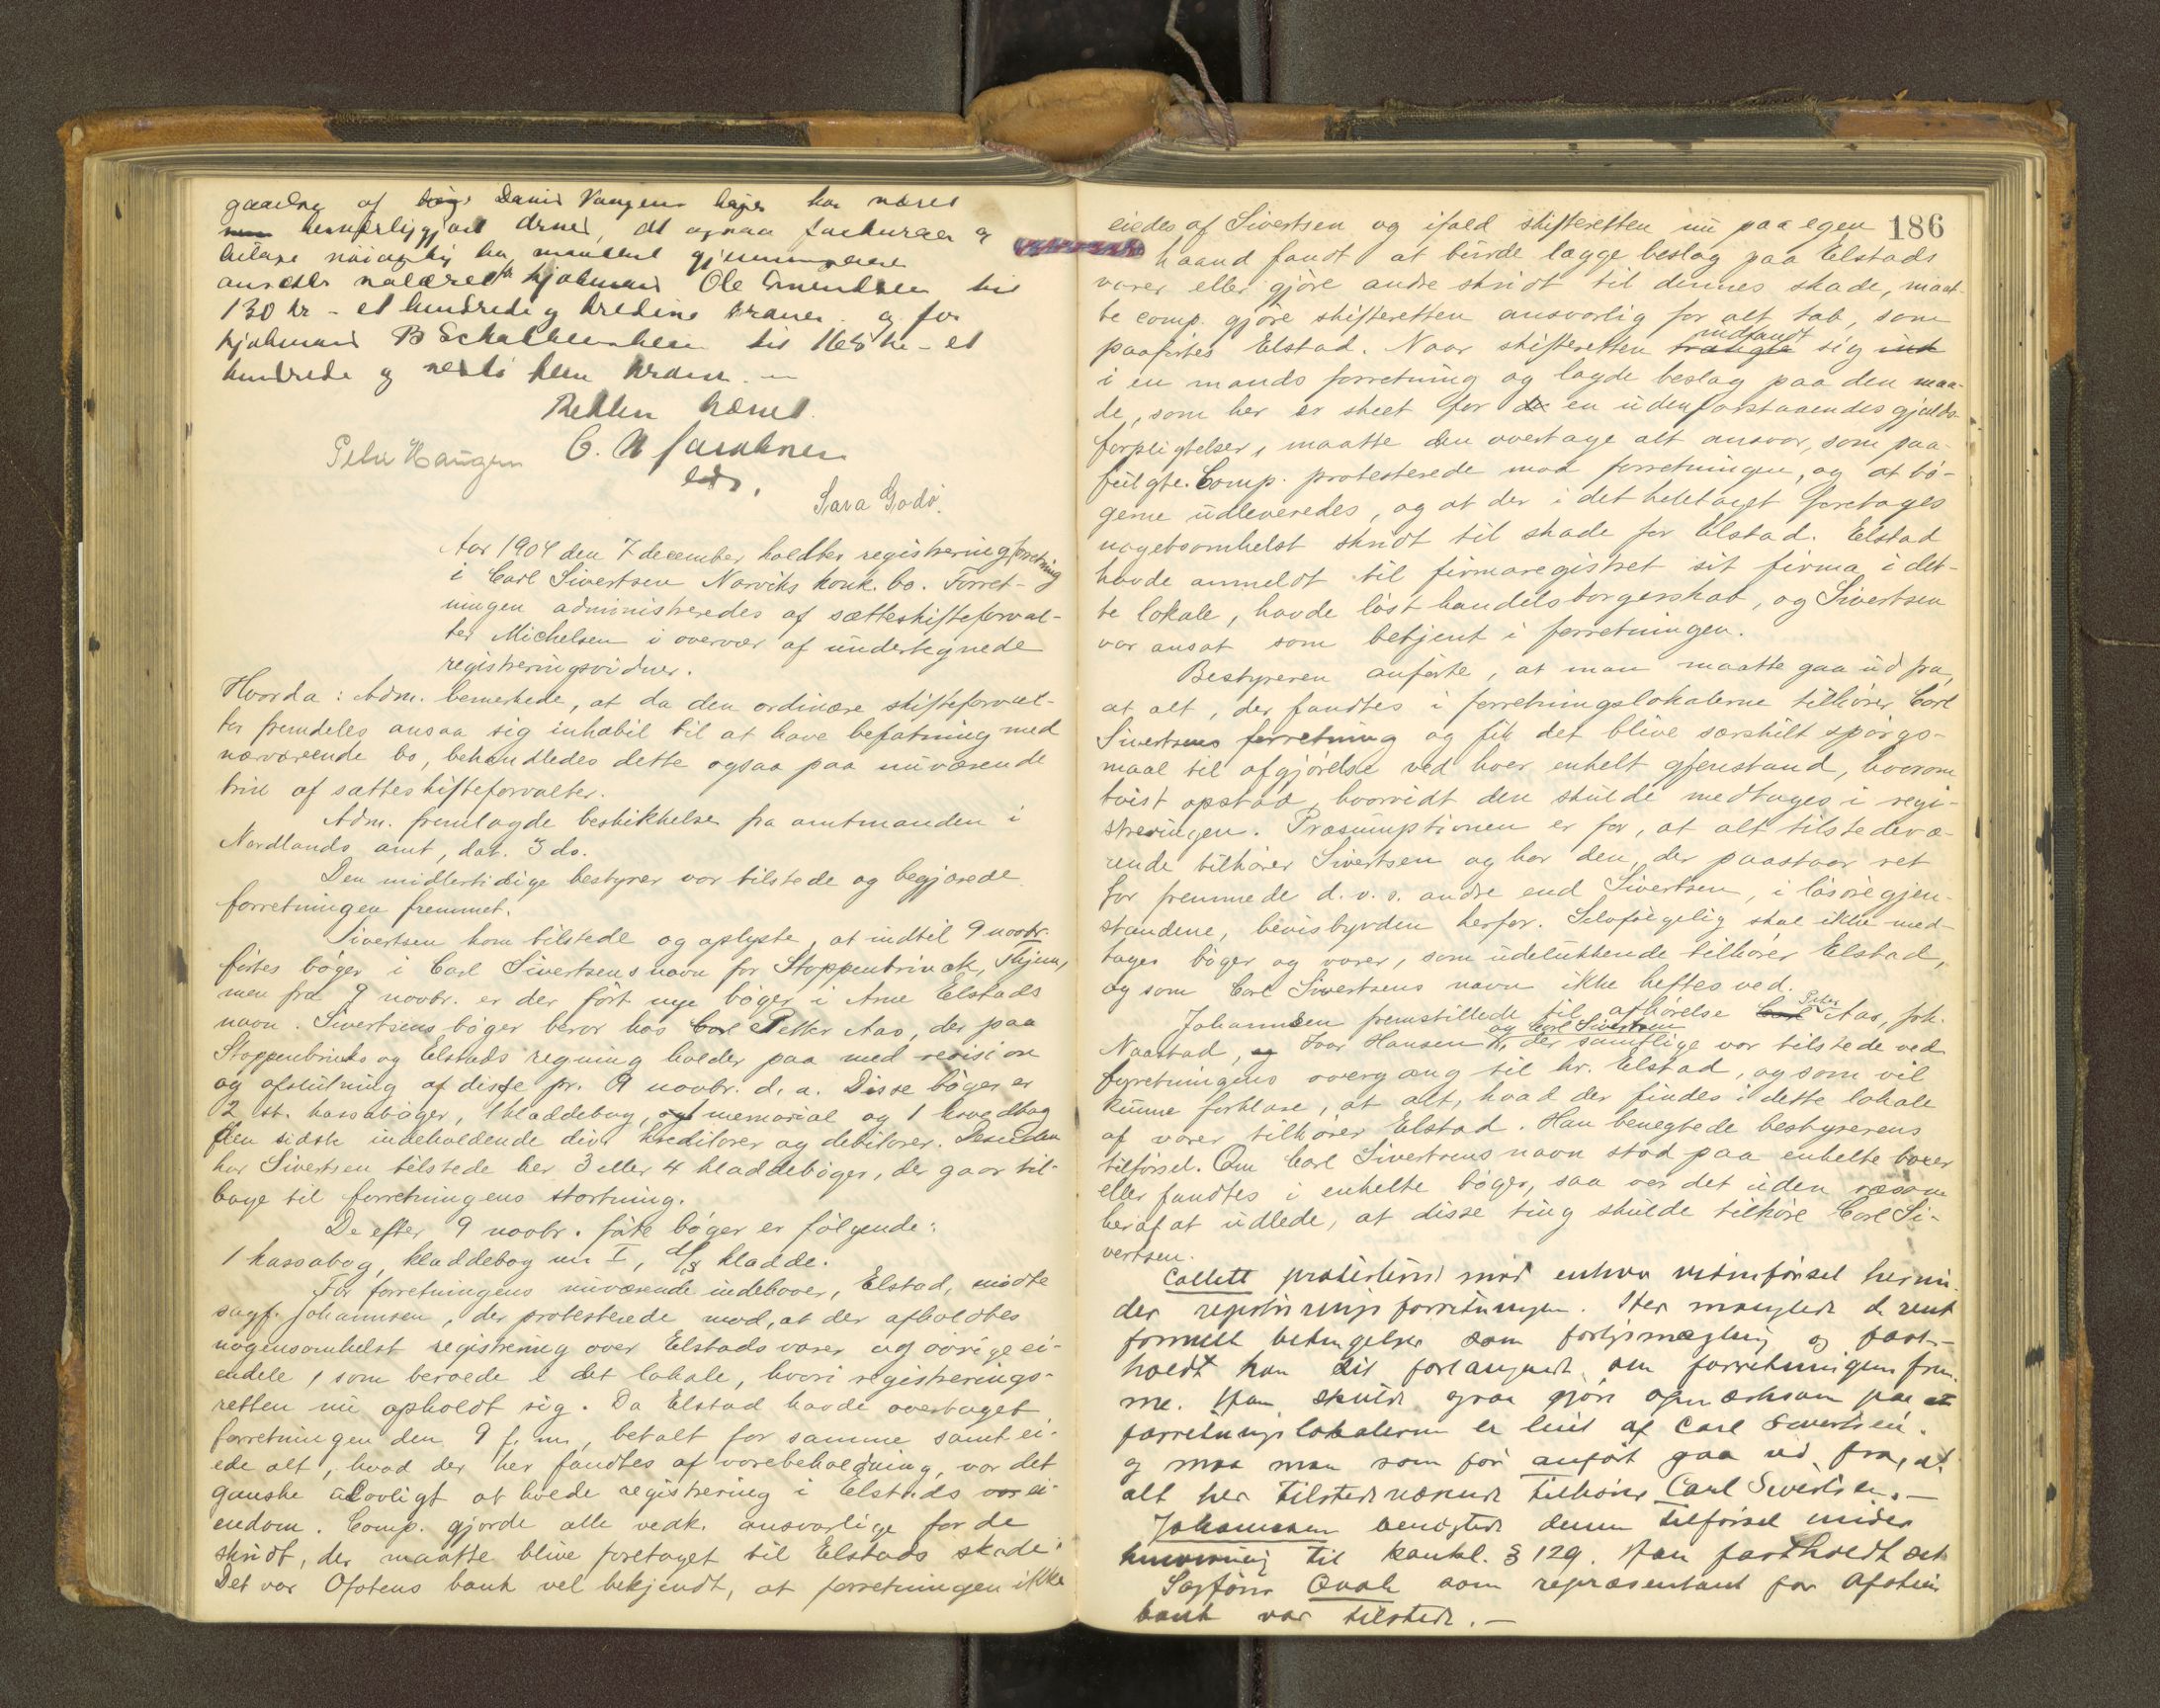 gaaelne af David Vangens bøger har været
det ogsaa fakturaer og
gjennemgaaet
kjøbmand Ole Amundsen til
130 kr - et hundrede og tredive kroner og for
kjøbmand B til 165 kr - et
hundrede og seksti fem kroner. —
Retten hævet.
Peter Haugen
Sara Godø.
Aar 1904 den 7 december holdtes registreringsforretning
i Carl Sivertsen Narviks konk. bo. Forret-
ningen administreredes af sætteskifteforval-
ter Michelsen i overvær af undertegnede
registreringsvidner.
Hvorda: Adm. bemerkede, at da den ordinære skifteforval-
ter fremdeles ansaa sig inhabil til at have befatning med
nærværende bo, behandledes dette ogsaa paa nuværende
trin af sætteskifteforvalter.
Adm. fremlagde beskikkelse fra amtmanden i
Nordlands amt, dat. 3 ds.
Den midlertidige bestyrer var tilstede og begjærede
forretningen fremmet.
Sivertsen kom tilstede og oplyste, at indtil 9 novbr.
førtes bøger i Carl Sivertsens navn for Stoppenbrinck, Thjem,
men fra 9 novbr. er der ført nye bøger i Arne Elstads
navn. Sivertsens bøger beror hos Carl Petter Aas, der paa
Stoppenbrinks og Elstads regning holder paa med revision
og afslutning af disse pr. 9 novbr. d. a. Disse bøger er
2 st. kassabøger, 1 kladdebog, og 1 memorial og 1 hovedbog
den sidste indeholdende div. kreditorer og debitorer. Desuden
har Sivertsen tilstede her 3 eller 4 kladdebøger, der gaar til-
bage til forretningens startning.
De efter 9 novbr. førte bøger er følgende:
1 kassabog, kladdebog nr I, kladde.
For forretningens nuværende indehaver, Elstad, mødte
sagf. Johannsen, der protesterede mod, at der afholdtes
nogensomhelst registrering over Elstads varer og øvrige ei-
endele, som beroede i det lokale, hvori registrerings-
retten nu opholdt sig. Da Elstad havde overtaget
forretningen den 9 f. m., betalt for samme samt ei-
ede alt, hvad der her fandtes af varebeholdning, var det
ganske ulovligt at holde registrering i Elstads var ei-
endom. Comp. gjorde alle vedk. ansvarlige for de
skridt, der maatte blive foretaget til Elstads skade.
Det var Ofotens bank vel bekjendt, at forretningen ikke
186
eiedes af Sivertsen og ifald skifteretten nu paa egen
haand fandt at burde lægge beslag paa Elstads
varer eller gjøre andre skridt til dennes skade, maat-
te comp. gjøre skifteretten ansvarlig for alt tab, som
paaførtes Elstad. Naar skifteretten trængte indfandt sig ind
i en mands forretning og lagde beslag paa den maa-
de, som her er skeet for de en udenforstaaendes gjelds-
forpligtelser, maatte den overtage alt ansvar, som paa-
fulgte. Comp. protesterede mod forretningen, og at bø-
gerne udleveredes, og at der i det heletaget foretages
nogetsomhelst skridt til skade for Elstad. Elstad
havde anmeldt til firmaregistret sit firma i det-
te lokale, havde løst handelsborgerskab, og Sivertsen
var ansat som betjent i forretningen.
Bestyreren anførte, at man maatte gaa ud fra,
at alt, der fandtes i forretningslokalerne tilhører Carl
Sivertsens forretning og fik det blive særskilt spørgs-
maal til afgjørelse ved hver enkelt gjenstand, hvorom
tvist opstod, hvorvidt den skulde medtages i regi-
streringen. Præsumptionen er for, at alt tilstedevæ-
rende tilhører Sivertsen og har den, der paastaar ret
for fremmede d. v. s. andre end Sivertsen, i løsøregjen-
standene, bevisbyrden herfor. Selvfølgelig skal ikke med-
tages bøger og varer, som udelukkende tilhører Elstad,
og som Carl Sivertsens navn ikke heftes ved.
Johannsen fremstillede til afhørelse Carl Peter Aas, Joh.
Naastad, og Ivar Hansen og Carl Sivertsen, der samtlige var tilstede ved
forretningens overgang til hr. Elstad, og som vil
kunne forklare, at alt, hvad der findes i dette lokale
af varer tilhører Elstad. Han benegtede bestyrerens
tilførsel. Om Carl Sivertsens navn stod paa enkelte varer
eller fandtes i enkelte bøger, saa var det uden ræson
heraf at udlede, at disse ting skulde tilhøre Carl Si-
vertsen.
Collett protesterte mod enhver vidneførsel herun-
der registreringsforretningen. Her manglede de rent
formelle betingelser som forligsmægling og fast-
holdt han sit forlangende om forretningens frem-
me. Han skulde ogsaa gjøre opmærksom paa at
forretningslokalerne er leiet af Carl Sivertsen
og maa man som før anført gaa ud fra, at
alt her tilstedeværende tilhører Carl Sivertsen. —
Johannsen benægtede denne tilførsel under
henvisning til konkl. § 129. Han fastholdt sit
Sagfører Qvale som repræsentant for Ofotens
bank var tilstede. —